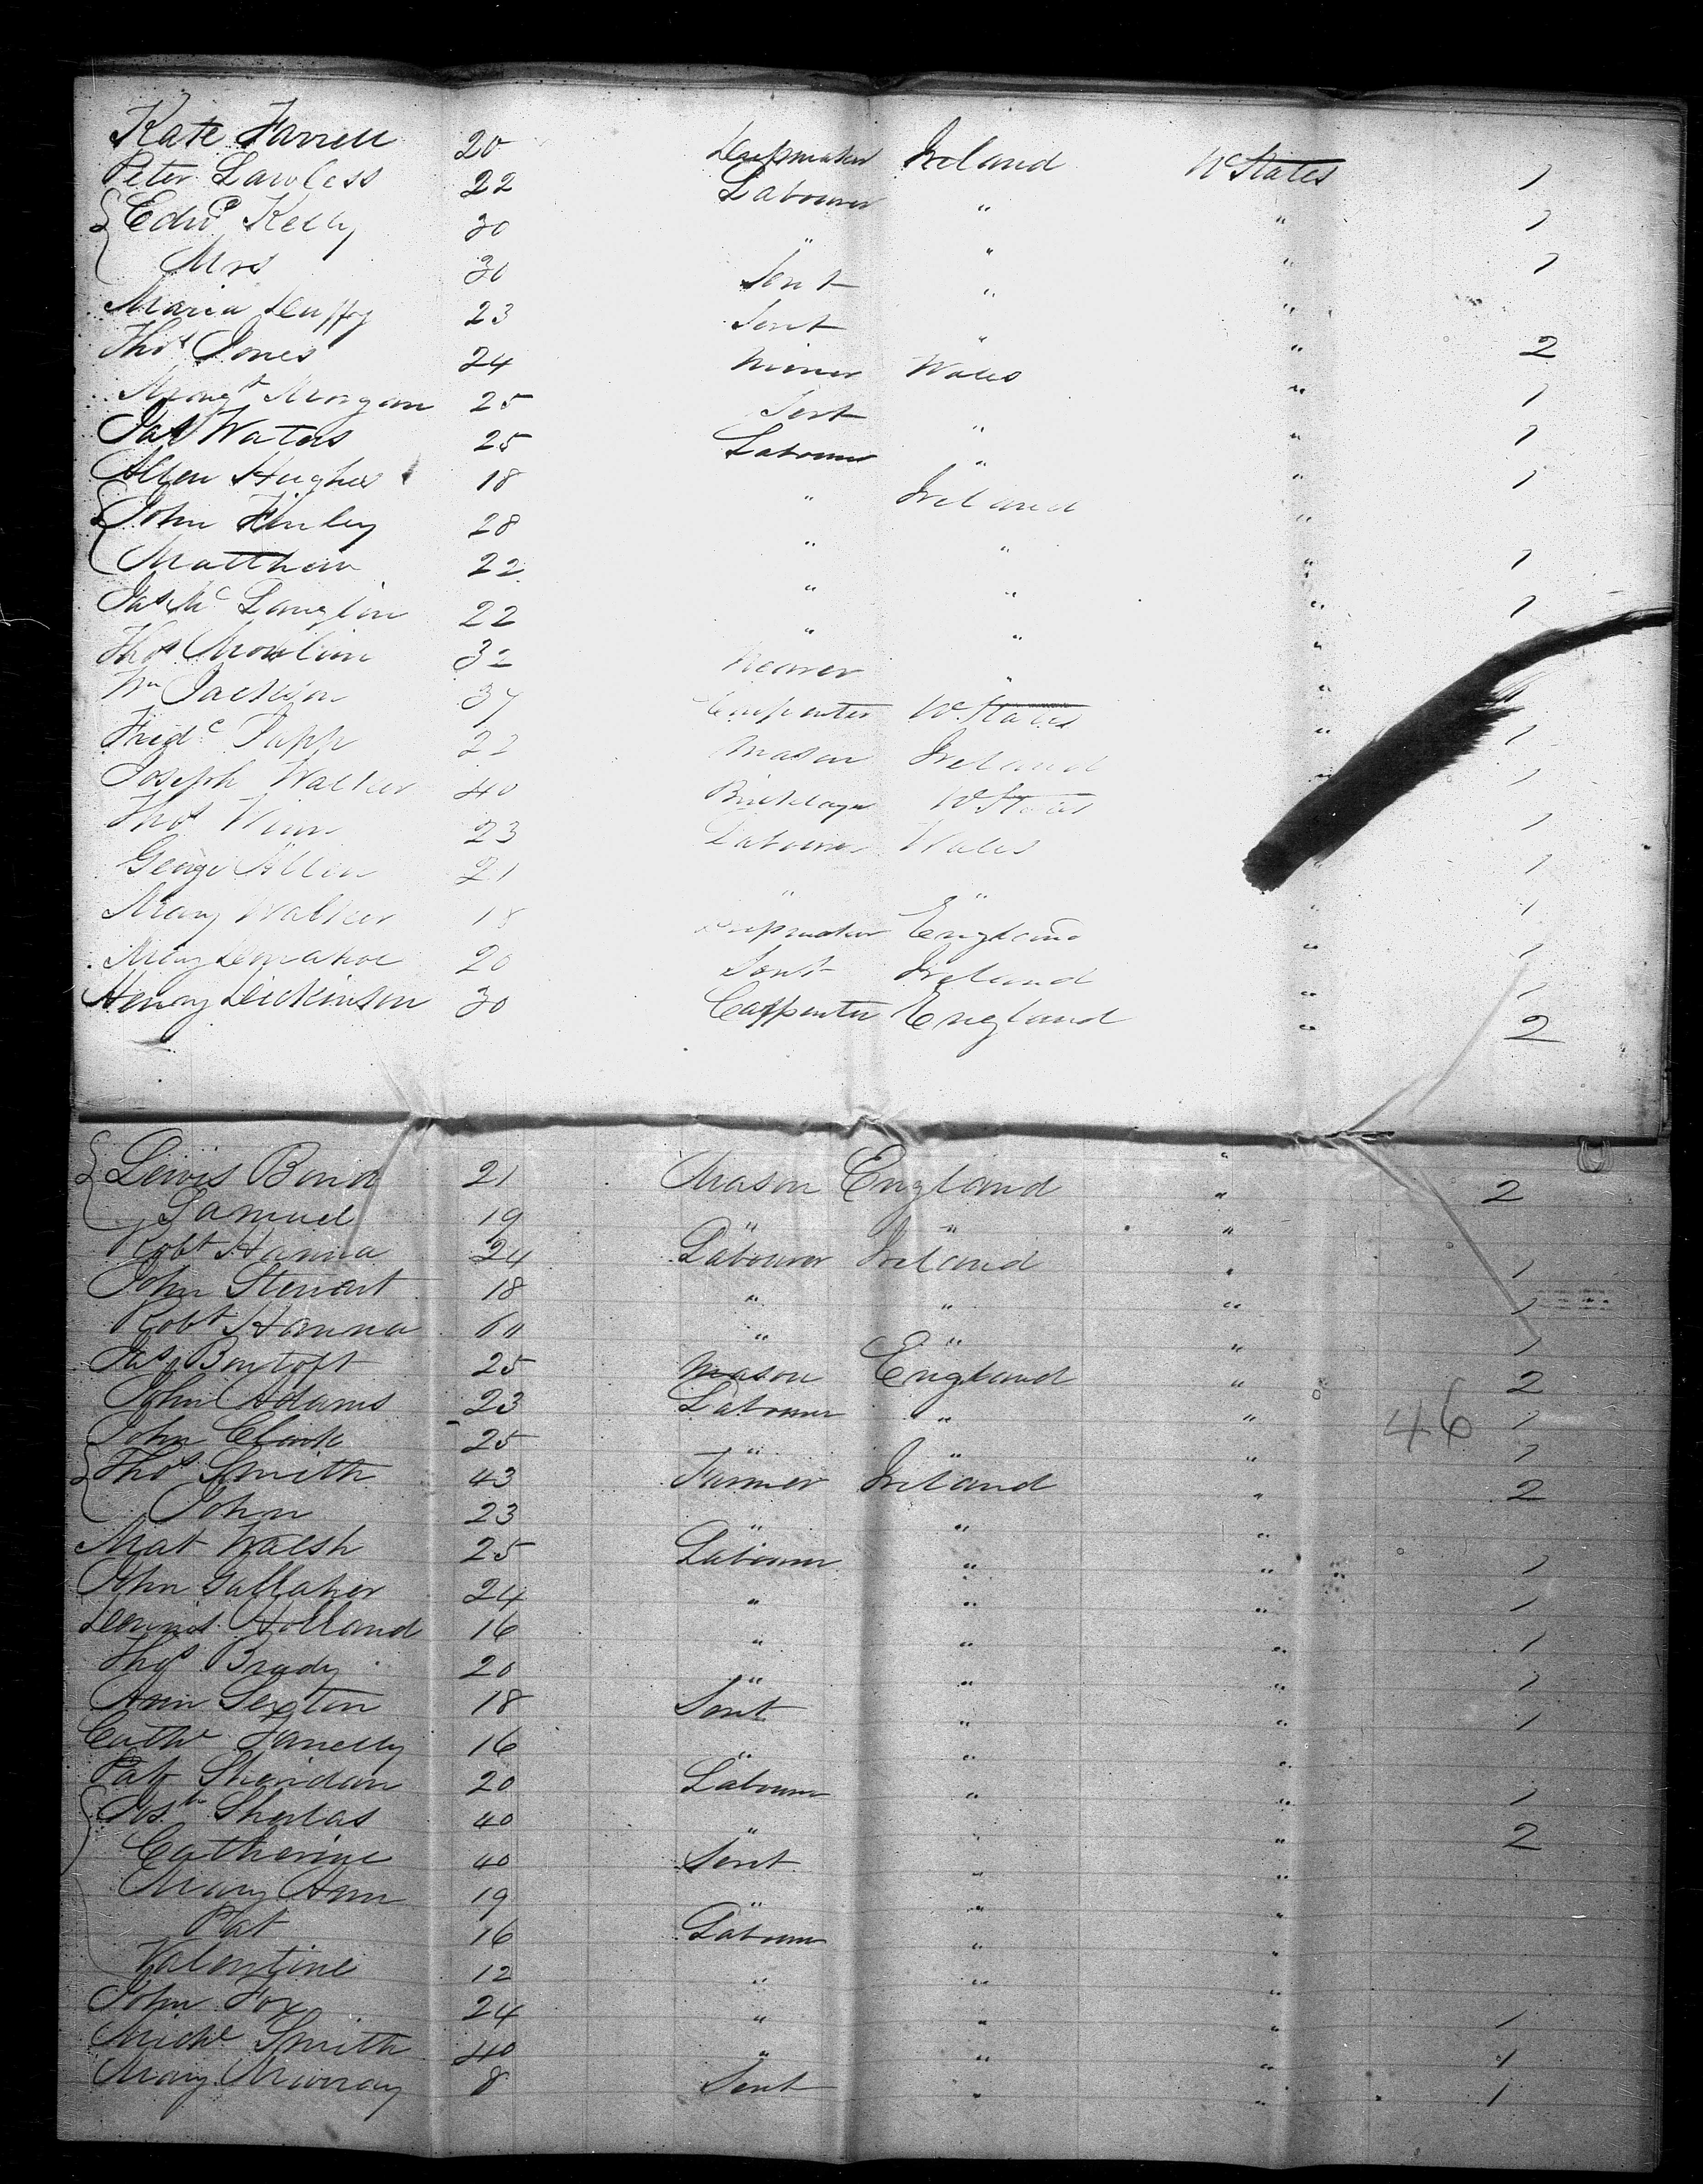 Kate Farrell 20 Ireland U States 1
Peter Lawless 22 Labourer " " 1
Edwd Kelly 30 " " " 1
Mrs 30 Servt " "
Maria Duffy 23 Servt " " 2
Thos Jones 24 Miner Wales " 1
Margt Morgan 25 Servt " " 1
Jas Waters 25 Labourer " " 1
Allen Hughes 18 " Ireland "
John Finley 28 " " " 1
Matthew 22 " " " 1
Jas Mc 22 " " "
Thos 32 " "
Wm Jackson 37 Carpenter U. States " 1
Fredc Tapp 22 Mason Ireland " 1
Joseph Walker 40 Bricklayer U States 1
Thos Winn 23 Labourer Wales 1
George Allen 21 " " " 1
Mary Walker 18 England " 1
Mary 20 Servt Ireland " 1
Henry Dickinson 30 Carpenter England " 2
Lewis Bond 21 Mason England " 2
Samuel 19 " " "
Robt Hanna 24 Labourer Ireland " 1
John Stewart 18 " " " 1
Robt Hanna 60 " " " 1
Jas Bontoft 25 Mason England " 2
John Adams 23 Labourer " " 1
46
John Clark 25 " " " 1
Thos Smith 43 Farmer Ireland " 2
John 23 " " "
Mat Walsh 25 Labourer " " 1
John Gallaher 24 " " " 1
Dennis Holland 16 " " " 1
Thos Brady 20 " " " 1
Ann Sexton 18 Servt " " 1
Cathe 16 " " "
Pat Sheridan 20 Labourer " " 1
Josh 40 " " " 2
Catherine 40 Servt " "
Mary Ann 19 " " "
Pat 16 Labourer " "
Valentine 12 " " "
John Fox 24 " " " 1
Michl Smith 40 " " " 1
Mary Murray 8 Servt " " 1